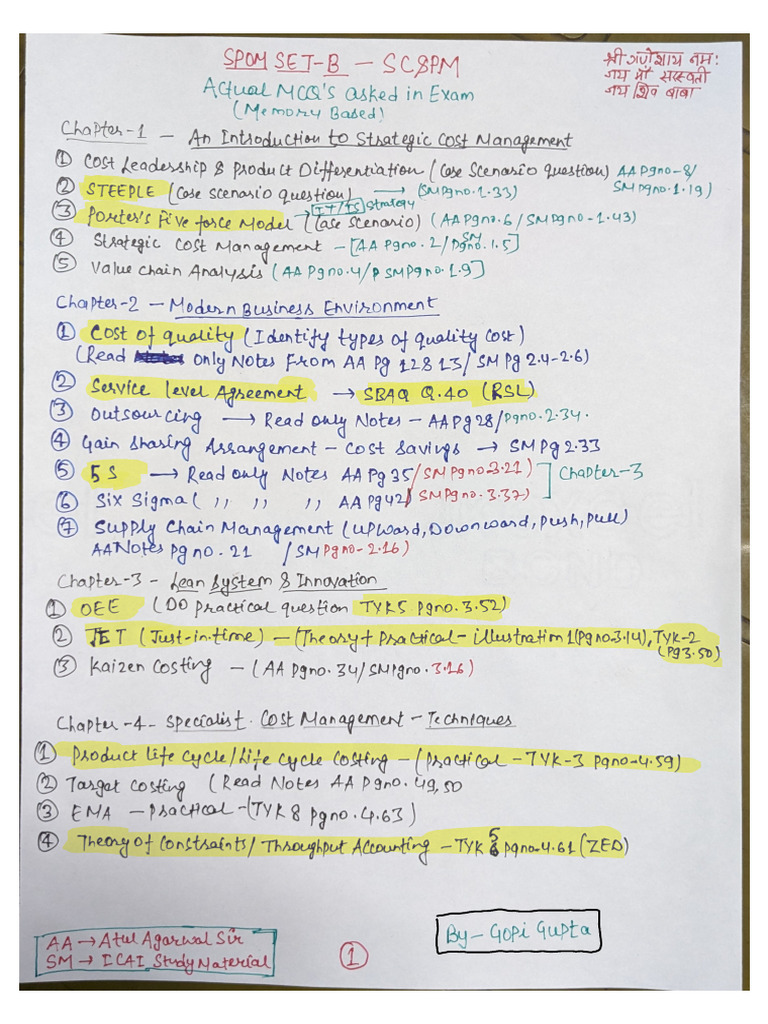 SPOM SET-B – SCSPM
श्री गणेशाय नमः
जय माँ सरस्वती
जय शिव बाबा
Actual MCQ's asked in Exam
(Memory Based)
Chapter-1 – An Introduction to Strategic Cost Management
① Cost Leadership & Product Differentiation (Case Scenario question) AA Pgno-8/
SM Pgno-1.19)
② STEEPLE (Case Scenario question) → (SM Pg no.1.33)
③ Porter's Five force Model → (Case Scenario) (AA Pgno.6/SM Pgno-1.43)
④ Strategic Cost Management – [AA Pgno. 2/SM Pgno.1.5]
⑤ Value Chain Analysis (AA Pg no.4/ SM Pgno.1.9]
Chapter-2 – Modern Business Environment
① Cost of quality (Identify types of quality Cost)
(Read only Notes From AA Pg 12&13/SM Pg 2.4-2.6)
② Service level Agreement → SBAQ Q.40 (RSL)
③ Outsourcing → Read only Notes – AA Pg28/Pgno.2.34.
④ Gain Sharing Arrangement – Cost Savings → SM Pg 2.33
⑤ 5 S → Read only Notes AA Pg 35/SM Pgno.3.21) Chapter-3
⑥ Six Sigma ( ,, ,, ,, AA Pg42/ SM Pgno.3.37)
⑦ Supply Chain Management (Upward, Downward, Push, Pull)
AA Notes Pg no. 21 /SM Pgno-2.16)
Chapter-3 – Lean System & Innovation
① OEE (DO Practical question TYK5 Pgno.3.52)
② JIT (Just-in-time) – (Theory + Practical – illustration 1(Pgno.3.14), TYK-2
(Pg 3.50)
③ Kaizen Costing – (AA Pgno. 34/SM Pgno. 3.16)
Chapter-4 – Specialist Cost Management – Techniques
① Product life cycle/Life Cycle Costing – (Practical – TYK-3 Pgno-4.59)
② Target Costing (Read Notes AA Pgno. 49,50
③ EMA – Practical – (TYK 8 Pgno.4.63)
④ Theory of Constraints/Throughput Accounting – TYK 5 Pgno-4.61 (ZED)
AA → Atul Agarwal Sir
SM → ICAI Study Material
①
By – Gopi Gupta